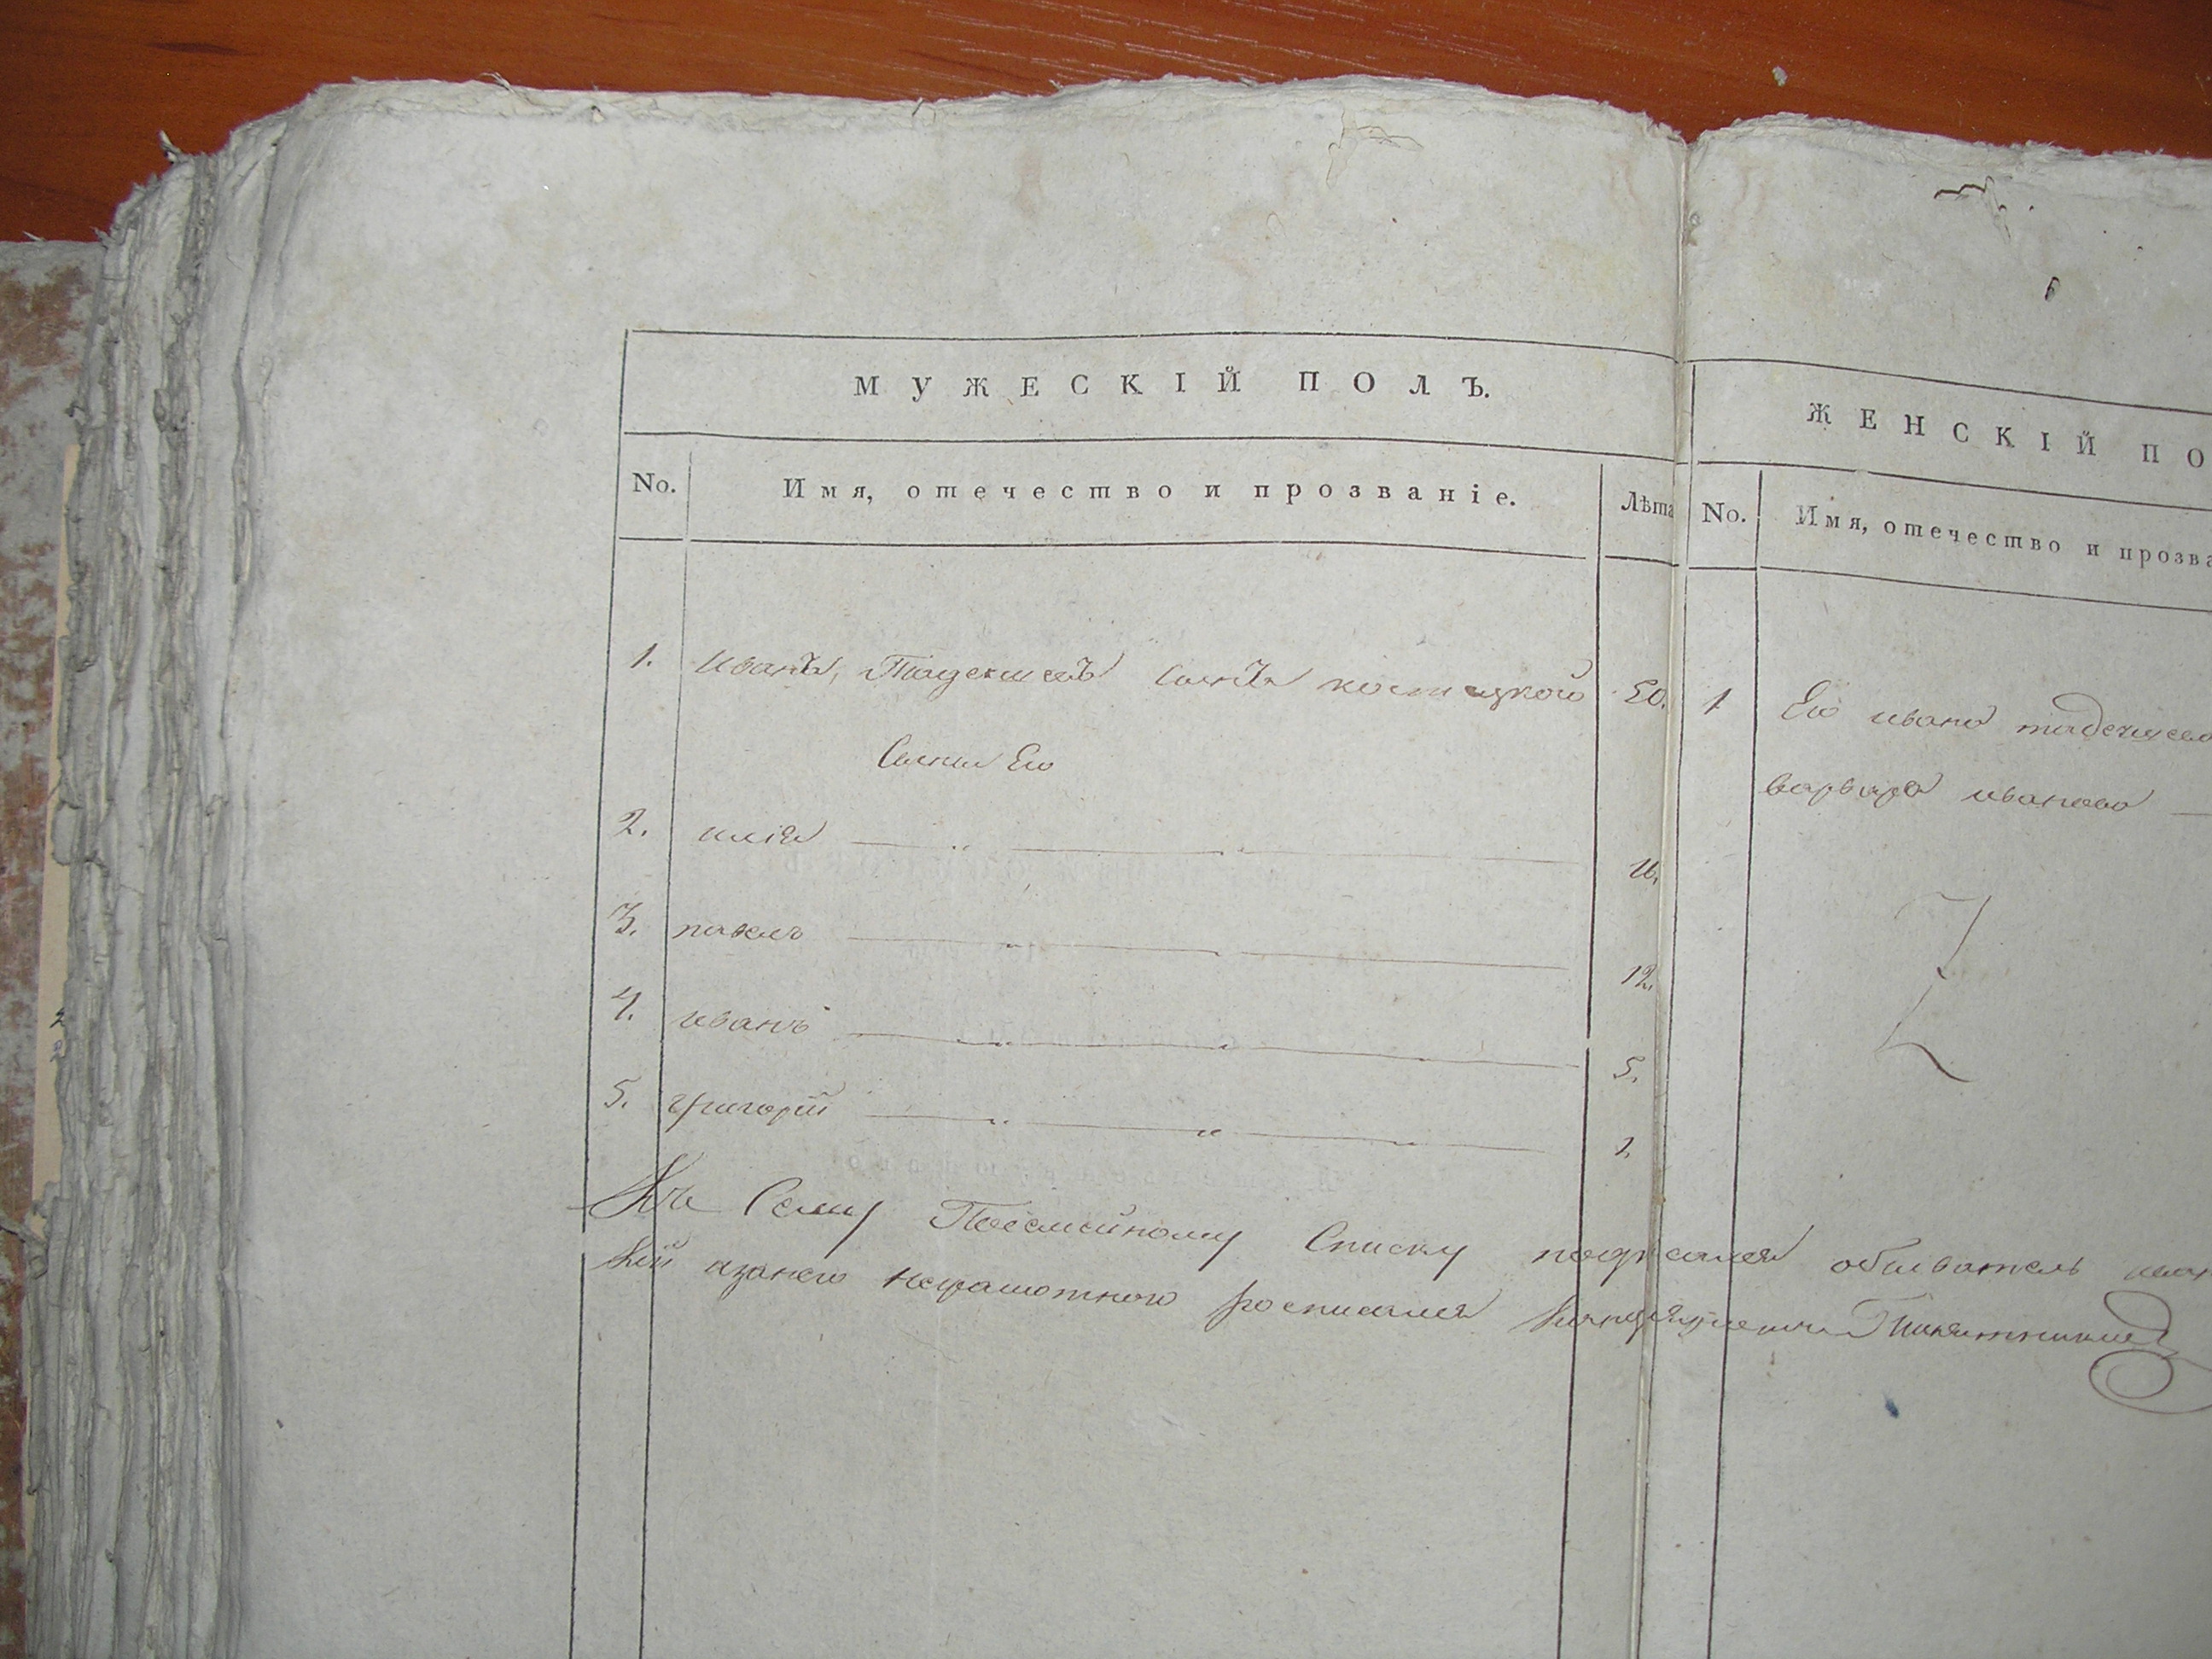 МУЖЕСКІЙ ПОЛЪ.
No. Имя, отечество и прозваніе. Лѣта
1. иванъ, Тадеешевъ Сынъ костецкого 50.
Сыны Его
2. илія
3. павелъ 12.
4. иванъ 5.
5. григорій 1.
ЖЕНСКІЙ ПО
No. Имя, отечество и прозва
1 Его ивана
варвара иванова
Къ Сему Посемейному Списку подписался обыватель иван
кій азанего неграмотного росписался